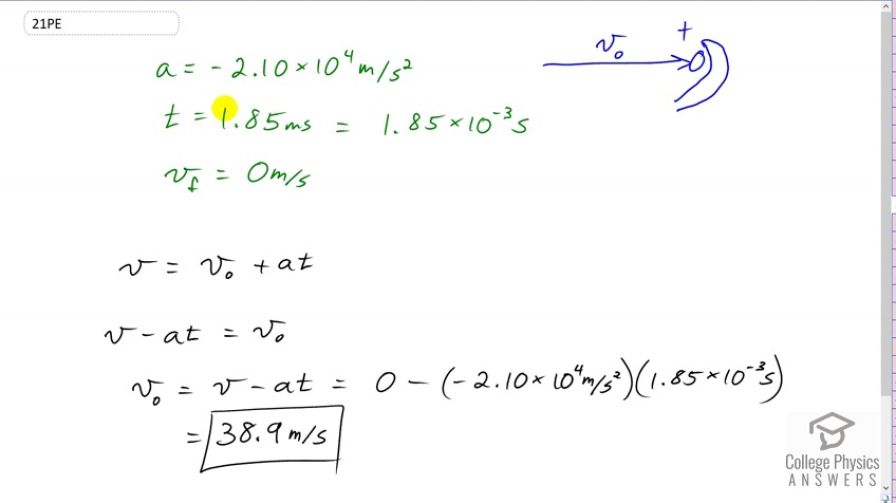 21PE
a = -2.10 × 10⁴ m/s²
v₀ +
t = 1.85 ms = 1.85 × 10⁻³ s
v_f = 0 m/s
v = v₀ + at
v - at = v₀
v₀ = v - at = 0 - (-2.10 × 10⁴ m/s²)(1.85 × 10⁻³ s)
= 38.9 m/s
College Physics
ANSWERS